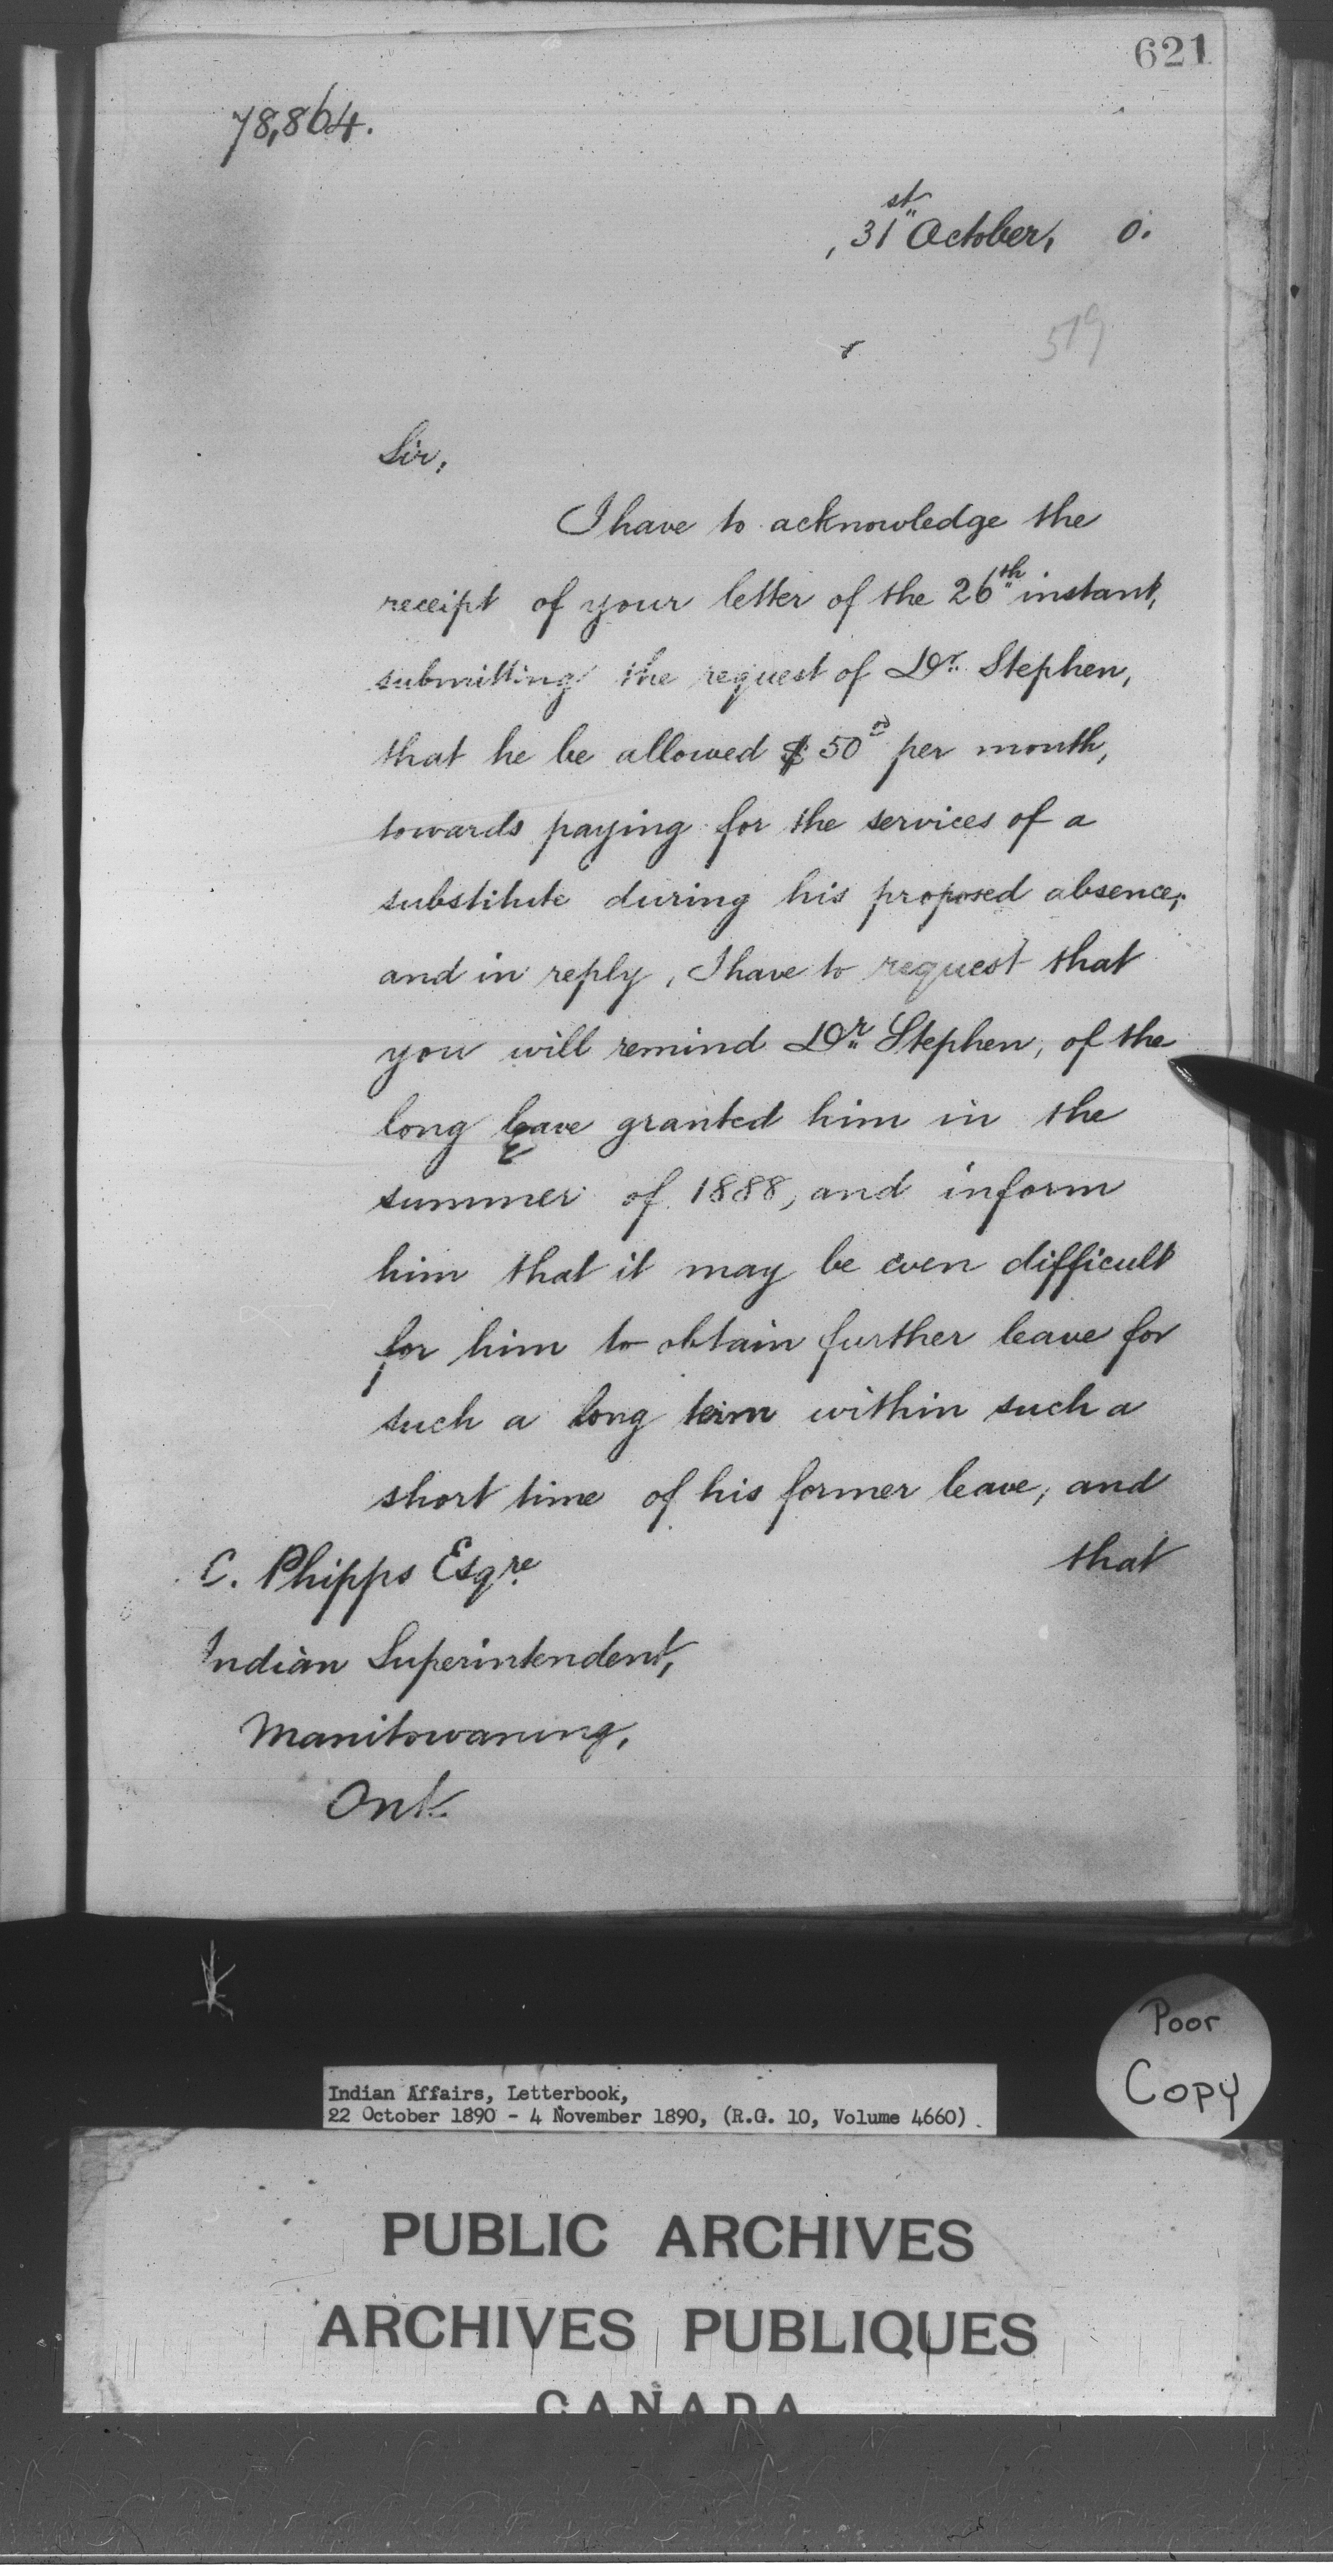 621
78,864.
, 31st October, 0.
519
Sir,
I have to acknowledge the
receipt of your letter of the 26th instant,
submitting the request of Dr. Stephen,
that he be allowed $50 00 per month,
towards paying for the services of a
substitute during his proposed absence;
and in reply, I have to request that
you will remind Dr. Stephen, of the
long leave granted him in the
summer of 1888, and inform
him that it may be even difficult
for him to obtain further leave for
such a long term within such a
short time of his former leave, and
that
C. Phipps Esqre
Indian Superintendent,
Manitowaning,
Ont.
Poor
Copy
Indian Affairs, Letterbook,
22 October 1890 - 4 November 1890, (R.G. 10, Volume 4660)
PUBLIC ARCHIVES
ARCHIVES PUBLIQUES
CANADA